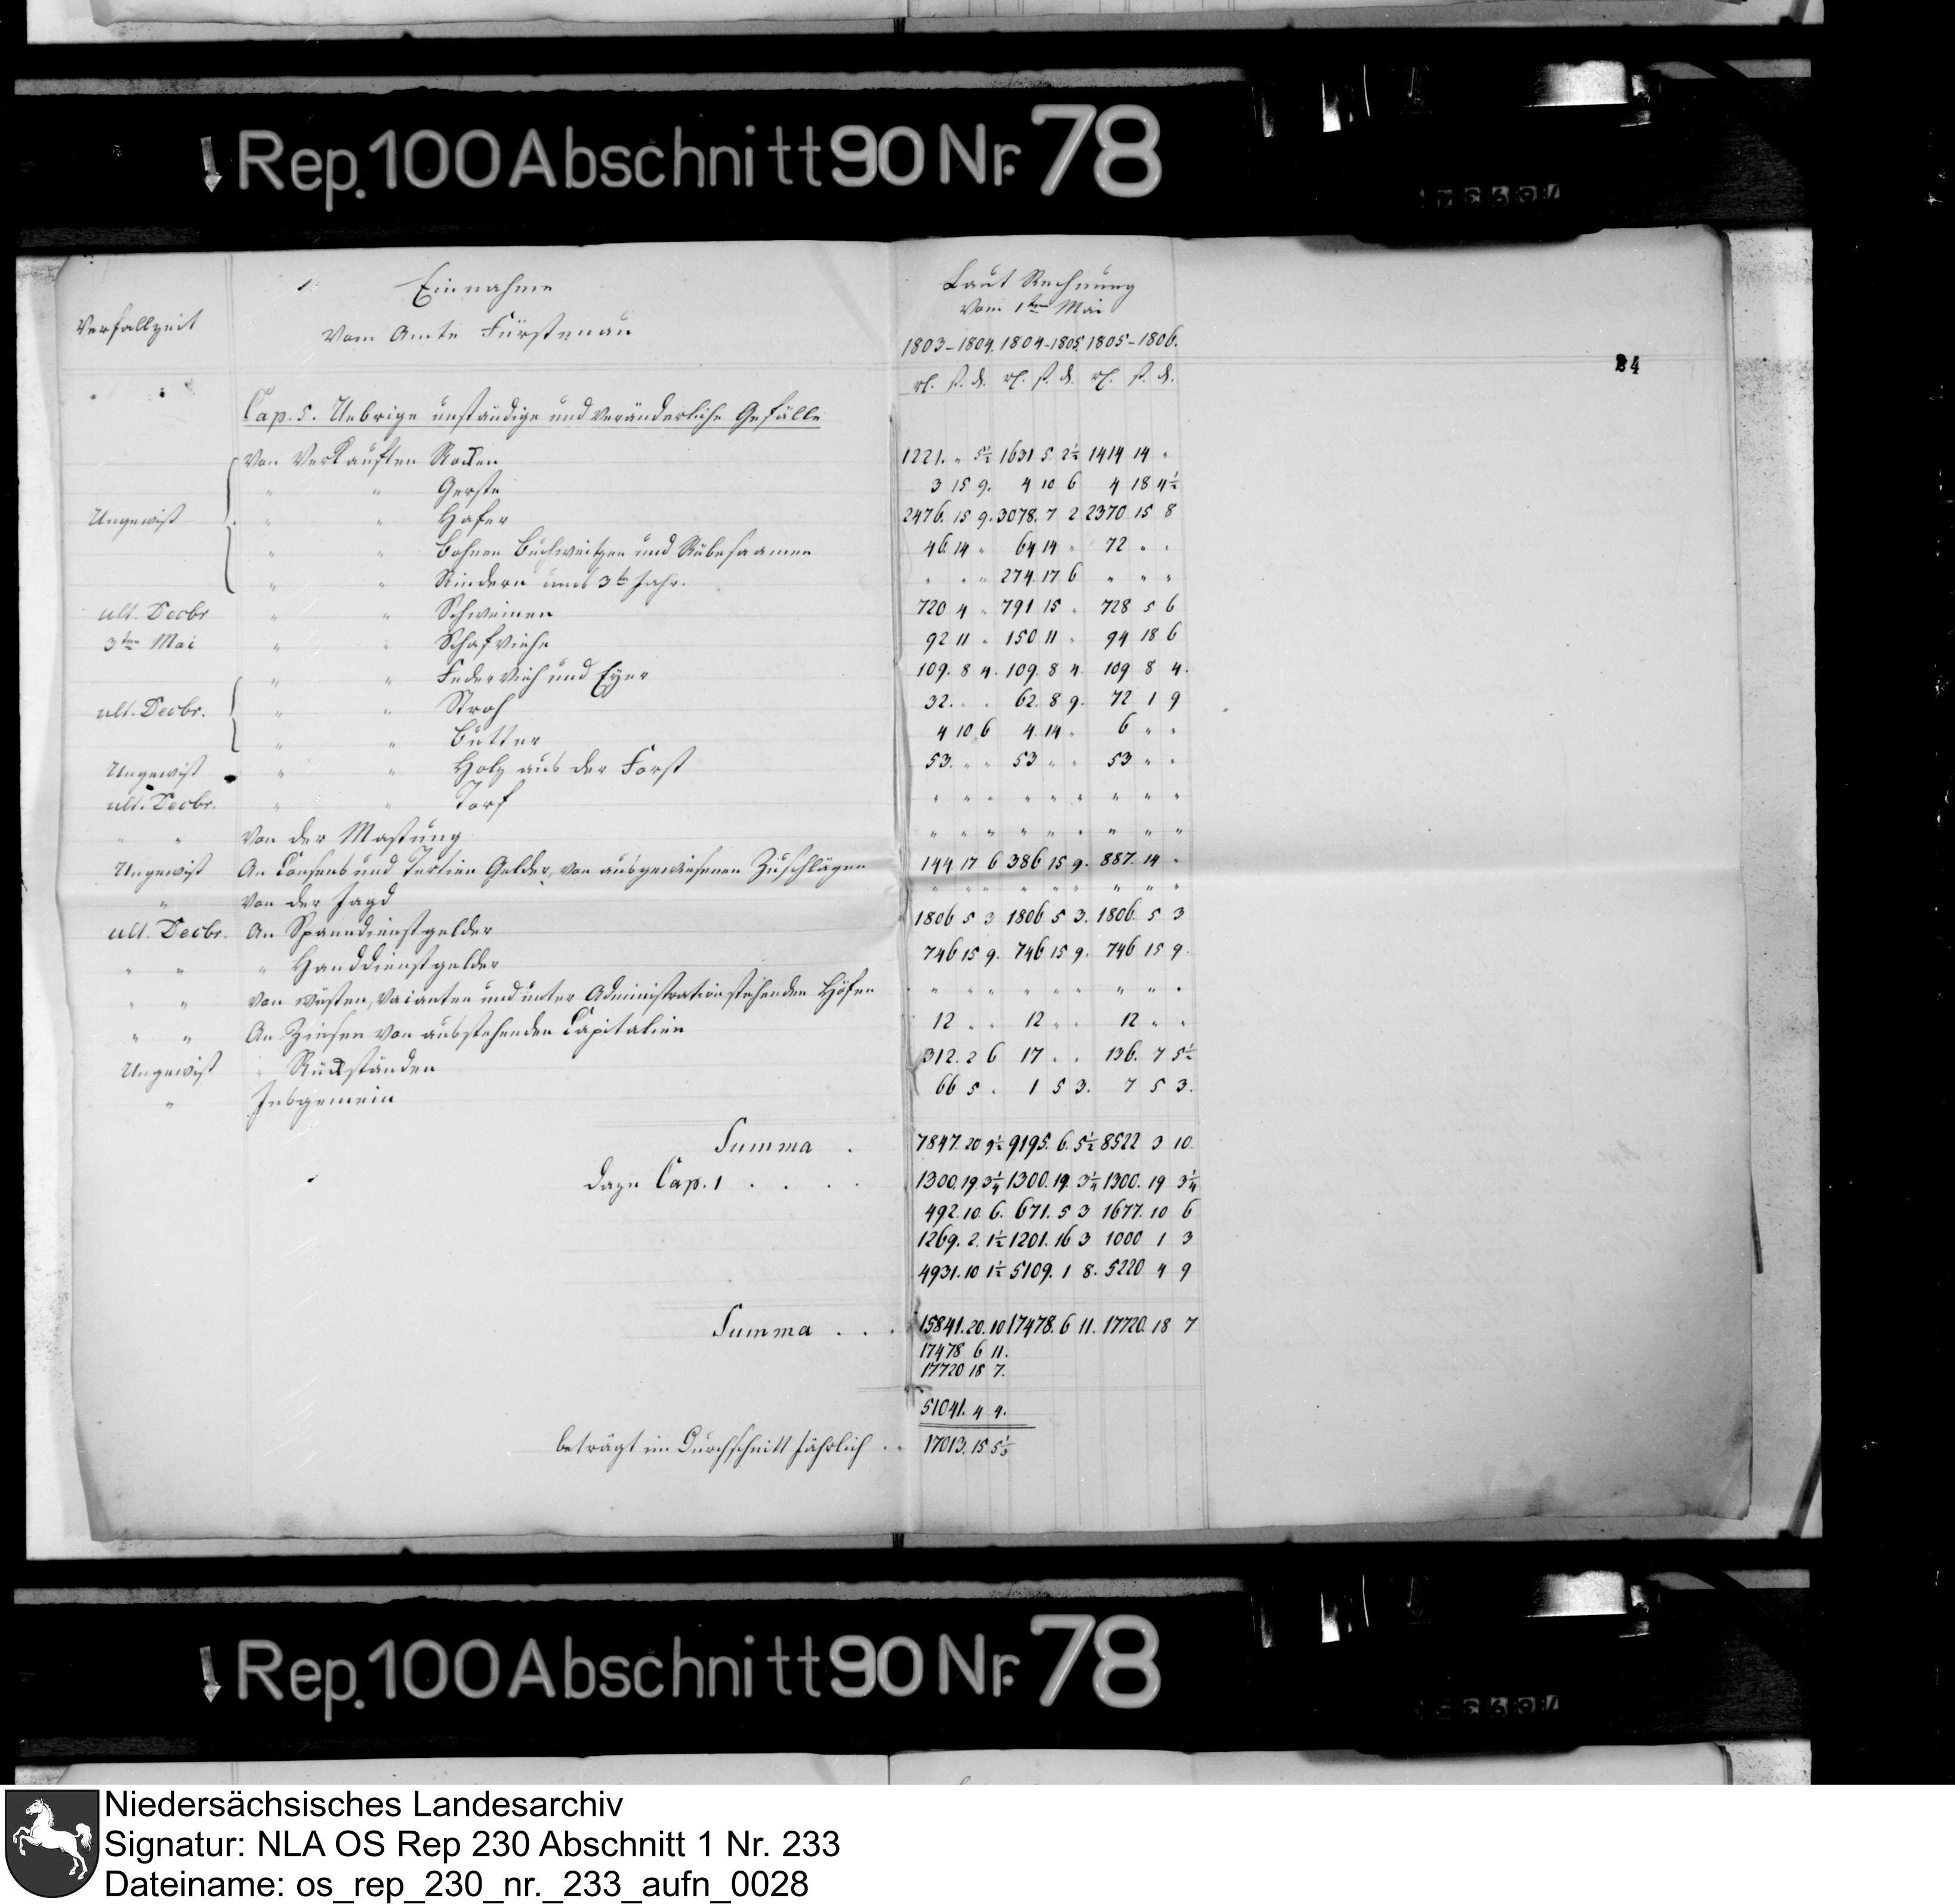 Rep. 100 Abschnitt 90 Nr. 78
Einnahme
Laut Rechnung
Verfallzeit
vom Amte Fürstenau
vom 1ten Mai
1803-1804. 1804-1805. 1805-1806.
rl. ß. d. rl. ß. d. rl. ß. d.
84
Cap. 5. Uebrige unständige und veränderliche Gefälle
Von Verkauften Rocken 1221. " 5½ 1631 5 2½ 1414 14 "
" " Gerste 3 15 9. 4 10 6 4 18 4½
Ungewiß " " Hafer 2476. 15 9. 3078. 7 2 2370 15 8
" " Bohnen Buchweitzen und Rübesaamen 46 14 " 64 14 " 72 " "
" " Rindern ums 3te Jahr. " " " 274. 17 6 " " "
ult. Decbr " " Schweinen 720 4 " 791 15 " 728 5 6
3ten Mai " " Schafviehe 92 11 " 150 11 " 94 18 6
" " Federvieh und Eyer 109. 8 4. 109. 8 4. 109 8 4.
ult. Decbr. " " Stroh 32. " " 62. 8 9. 72 1 9
" " Butter 4 10 6 4. 14 " 6 " "
Ungewiß " " Holz aus der Forst 53. " " 53 " " 53 " "
ult. Decbr. " " Torf " " " " " " " " "
" " Von der Mastung " " " " " " " " "
Ungewiß An Consens und Tertien Gelder, von ausgewiesenen Zuschlägen 144. 17 6 386 15 9. 887. 14 "
" Von der Jagd " " " " " " " " "
ult. Decbr. An Spanndienstgelder 1806 5 3 1806 5 3. 1806. 5 3
" " " Handdienstgelder 746 15 9. 746 15 9. 746 15 9.
" " von wüsten, vacanten und unter Administration stehenden Höfen " " " " " " " " "
" " An Zinsen von ausstehenden Capitalien 12 " " 12 " " 12 " "
Ungewiß " Rückständen 312. 2 6 17 " " 136. 7 5½
" Insgemein 66 5 " 1 5 3. 7 5 3.
Summa . 7847. 20 9½ 9195. 6. 5½ 8522 3 10.
dazu Cap. 1 . . . . 1300. 19. 3¼ 1300. 19. 3¼ 1300. 19 3¼
492. 10 6. 671. 5 3 1677. 10 6
1269. 2. 1½ 1201. 16 3 1000 1 3
4931. 10 1½ 5109. 1 8. 5220 4 9
Summa . . . 15841. 20. 10 17478. 6 11. 17720. 18 7
17478 6 11.
17720 18 7.
51041. 4 4.
beträgt im Durchschnitt jährlich . . 17013. 15 5⅓
Rep. 100 Abschnitt 90 Nr. 78
Niedersächsisches Landesarchiv
Signatur: NLA OS Rep 230 Abschnitt 1 Nr. 233
Dateiname: os_rep_230_nr._233_aufn_0028